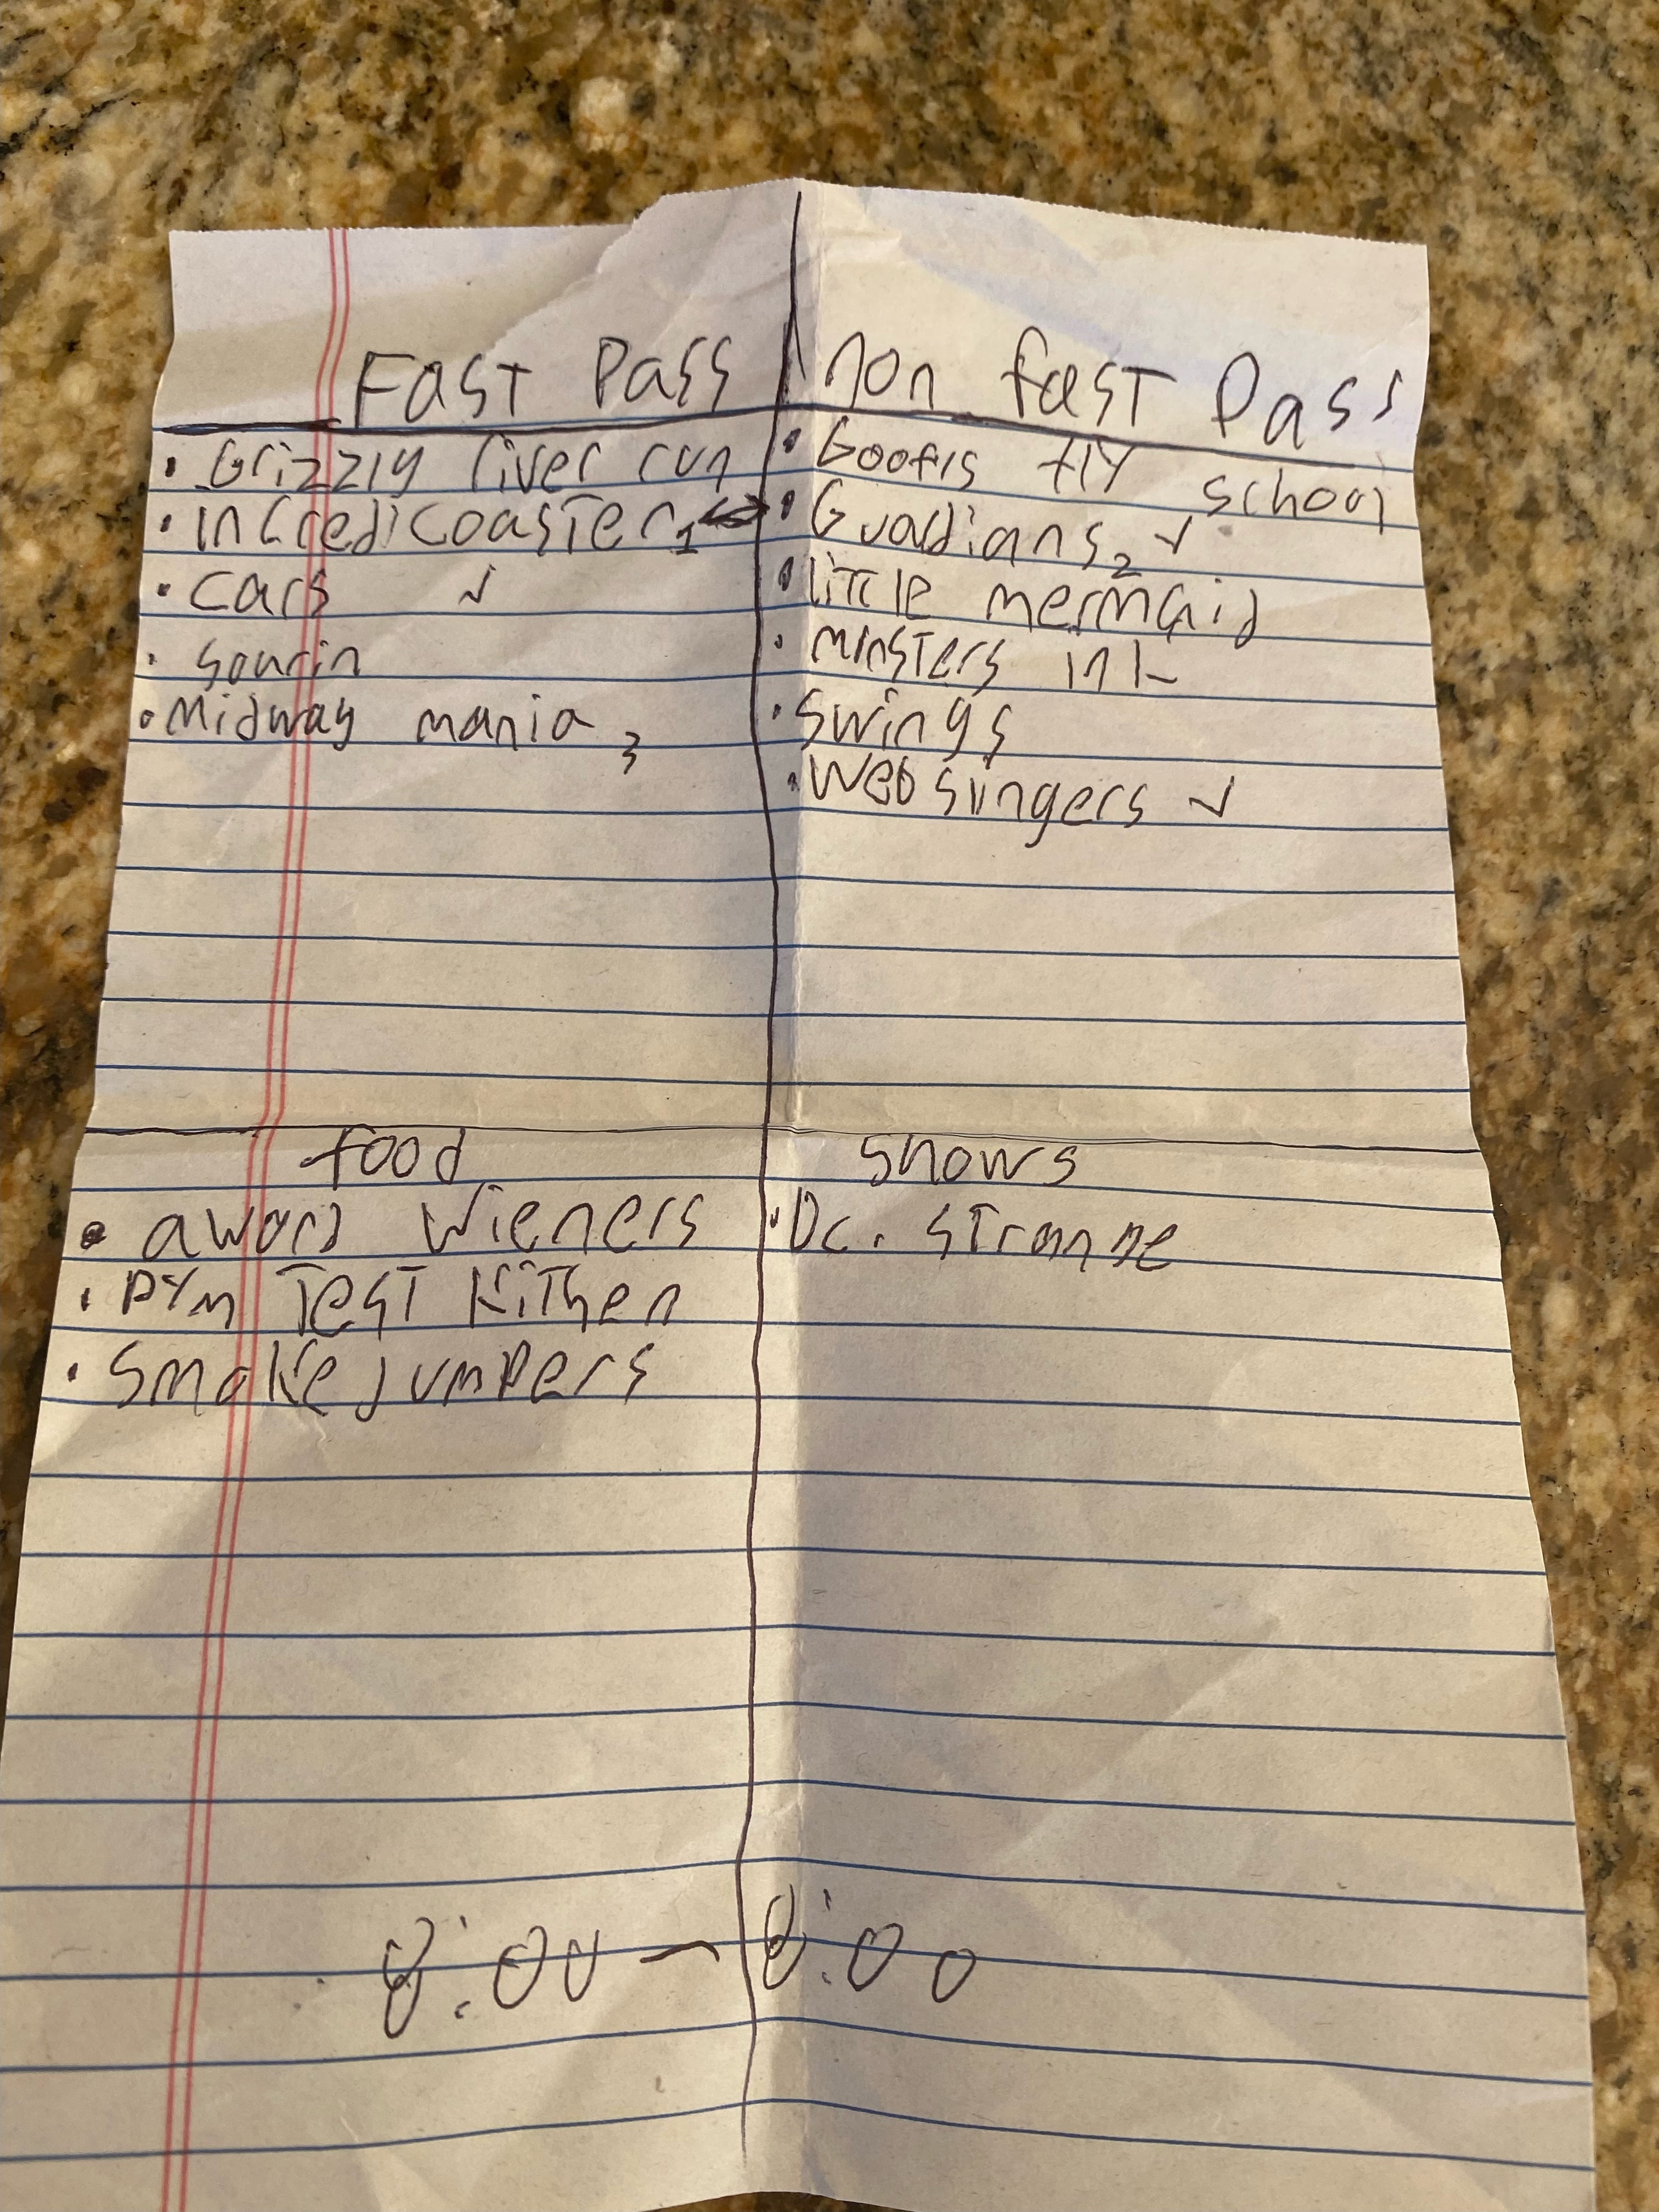 Fast Pass
Grizzly river run
incredicoaster 1
cars ✓
sourin
Midway mania 3
non fast Pass
Goofis fly school
Guardians 2 ✓
little mermaid
minsters in
swings
Web slingers ✓
food
award Wieners
PYm Test Kithen
Smoke jumpers
shows
Dr. stranne
8:00 - 8:00